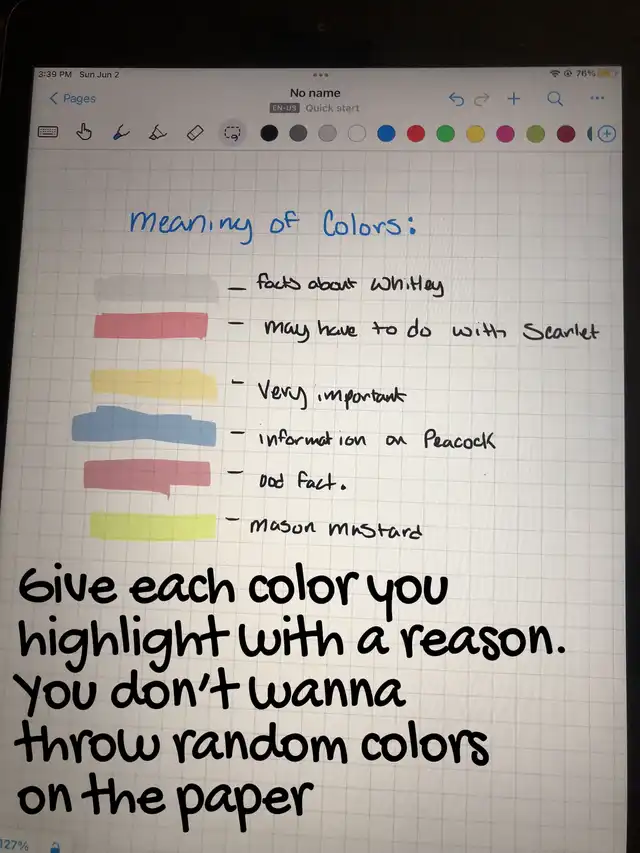 3:39 PM Sun Jun 2
76%
Pages
No name
EN-US Quick start
Meaning of Colors:
– facts about Whitley
– may have to do with Scarlet
– Very important
– information on Peacock
– odd fact.
– mason mustard
Give each color you
highlight with a reason.
You don't wanna
throw random colors
on the paper
127%